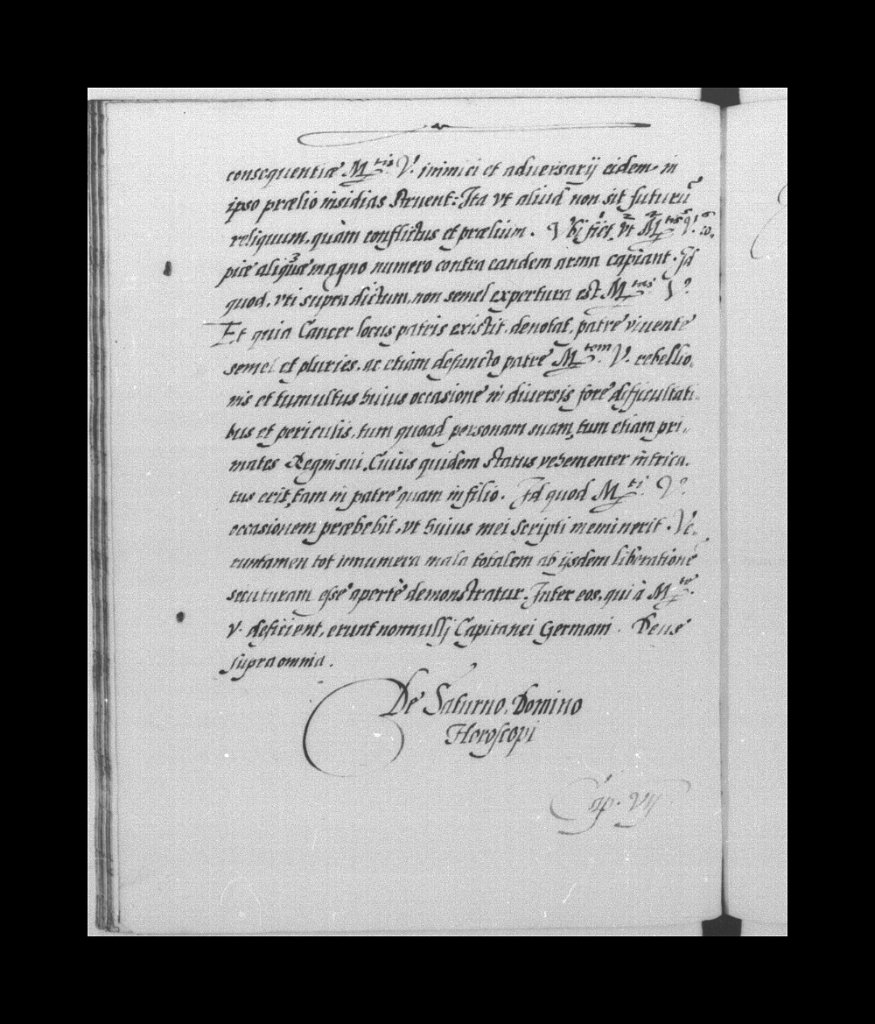 consequentiæ M.tis V. inimici et adversarij eidem in
ipso prælio insidias struent: Ita vt aliud non sit futurū
reliquum, quàm conflictus et prælium. Vbi fiet, vt M.tis V. co,
piæ aliquæ magno numero contra eandem arma capiant. Id
quod, vti supra dictum, non semel expertura est M.tas V.
Et quia Cancer locus patris existit, denotat, patre viuente
semel et pluries, ac etiam defuncto patre M.tem V. rebellio,
nis et tumultus huius occasione in diuersis fore difficultati,
bus et periculis, tum quoad personam suam, tum etiam pri,
mates Regni sui. Cuius quidem status vehementer intrica,
tus erit, tam in patre quam in filio. Id quod M.ti V.
occasionem præbebit, vt huius mei scripti meminerit. Ve,
runtamen tot innumera mala totalem ab ijsdem liberatione
secuturam esse apertè demonstratur. Inter eos, qui à M.te
V. deficient, erunt nonnullj Capitanei Germani. Deus
supra omnia.
De Saturno, Domino
Horoscopi
Cap. VII